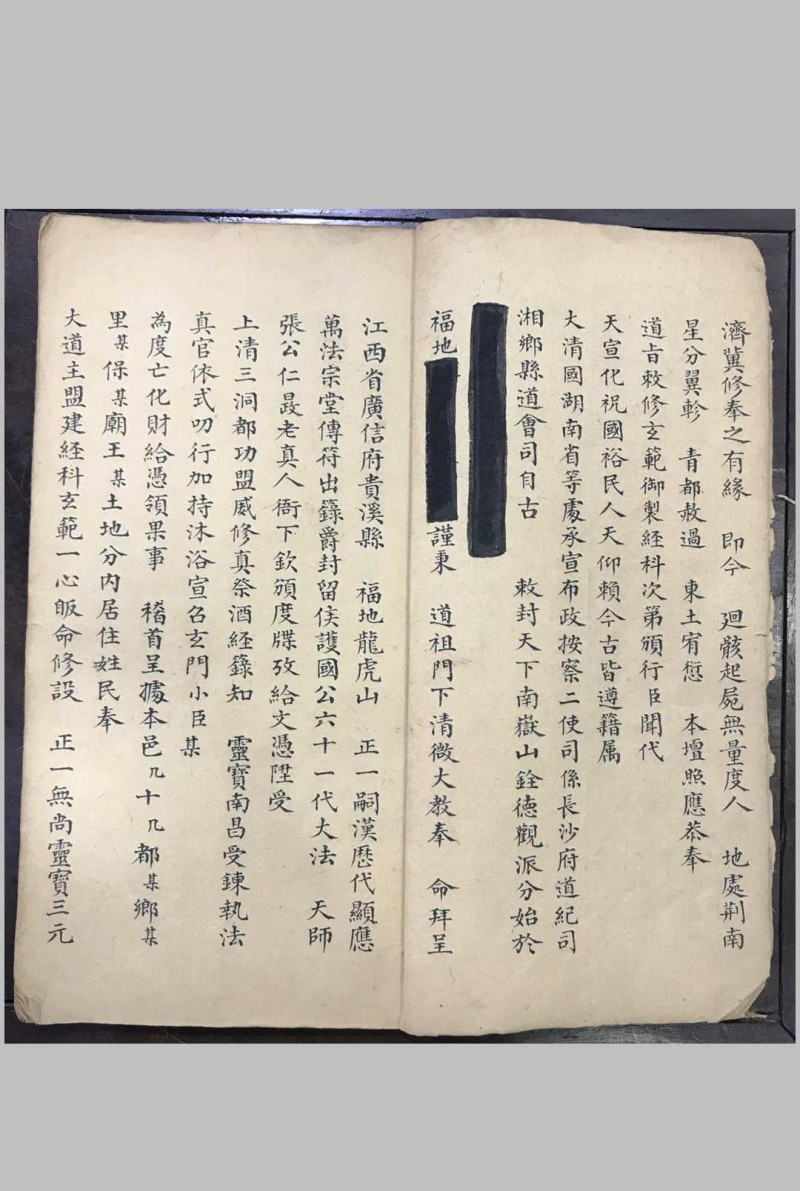 濟冀修奉之有緣　即今　廻骸起屍無量度人　地處荆南
星分翼軫　青都赦過　東土宥愆　本壇照應恭奉
道旨敕修玄範御製経科次第頒行臣聞代
天宣化祝國裕民人天仰賴今古皆遵籍属
大清國湖南省等處承宣布政按察二使司係長沙府道紀司
湘鄉縣道會司自古　敕封天下南嶽山銓德觀派分始於
福地　謹秉　道祖門下清微大教奉　命拜呈
江西省廣信府貴溪縣　福地龍虎山　正一嗣漢歷代顯應
萬法宗堂傳符出籙爵封留侯護國公六十一代大法　天師
張公仁晸老真人衙下欽頒度牒攷給文憑陞受
上清三洞都功盟威修真祭酒経籙知　靈寶南昌受鍊執法
真官依式叨行加持沐浴宣召玄門小臣某
為度亡化財給憑領果事　稽首呈據本邑几十几都某鄉某
里某保某廟王某土地分内居住姓民奉
大道主盟建経科玄範一心皈命修設　正一無尚靈寶三元